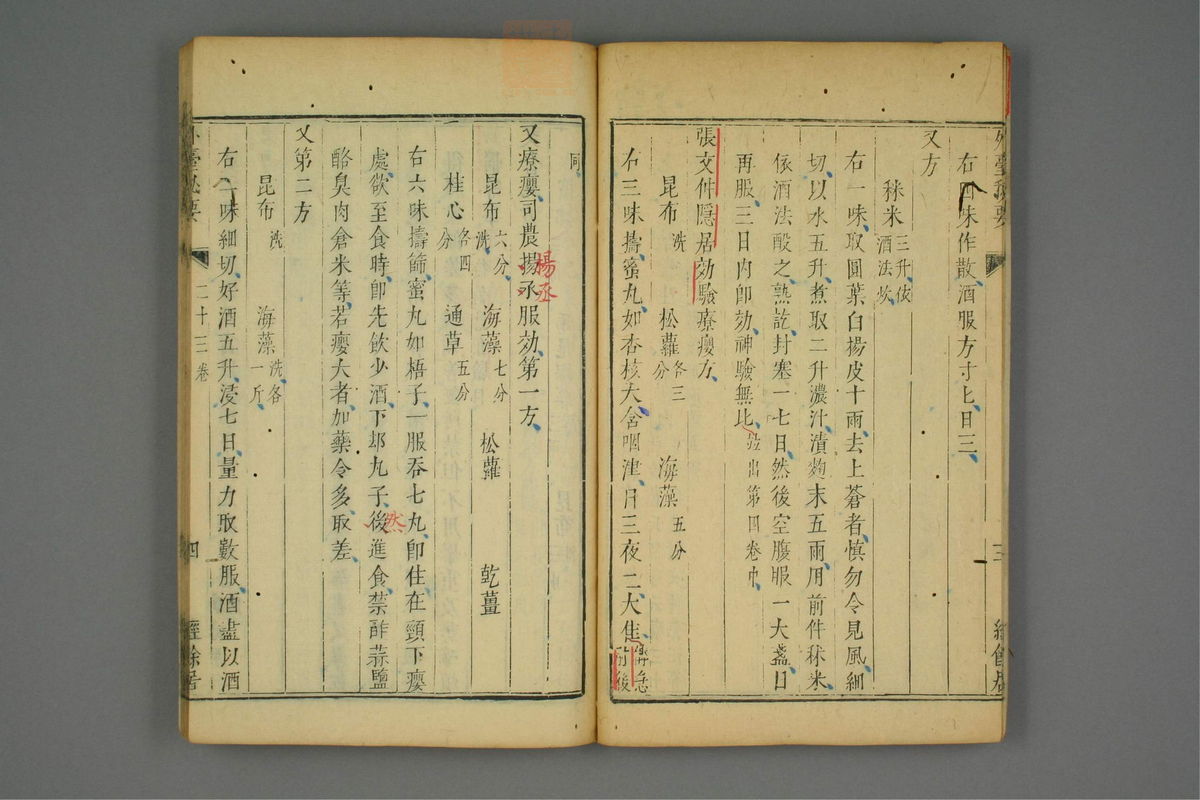 右四味作散酒服方寸匕日三
又方
秫米三升依酒法炊
右一味取圓葉白楊皮十兩去上蒼者慎勿令見風細
切以水五升煮取二升濃汁漬麴末五兩用前件秫米
依酒法酘之熟訖封塞一七日然後空腹服一大盞日
再服三日內即効神驗無比並出第四卷巾
張文仲隱居効驗療癭方
昆布洗 松蘿各三分 海藻五分
右三味擣蜜丸如杏核大含咽津日三夜二大佳備急
肘後
同
又療癭司農揚丞服効第一方
楊丞
昆布六分洗 海藻七分 松蘿 乾薑
桂心各四分 通草五分
右六味擣篩蜜丸如梧子一服吞七丸即住在頸下癭
處欲至食時即先飲少酒下却丸子後進食禁酢蒜鹽
然
酪臭肉倉米等若癭大者加藥令多取差
又第二方
昆布洗 海藻洗各一斤
右二味細切好酒五升浸七日量力取數服酒盡以酒
外臺秘要 二十三卷 四 經餘居